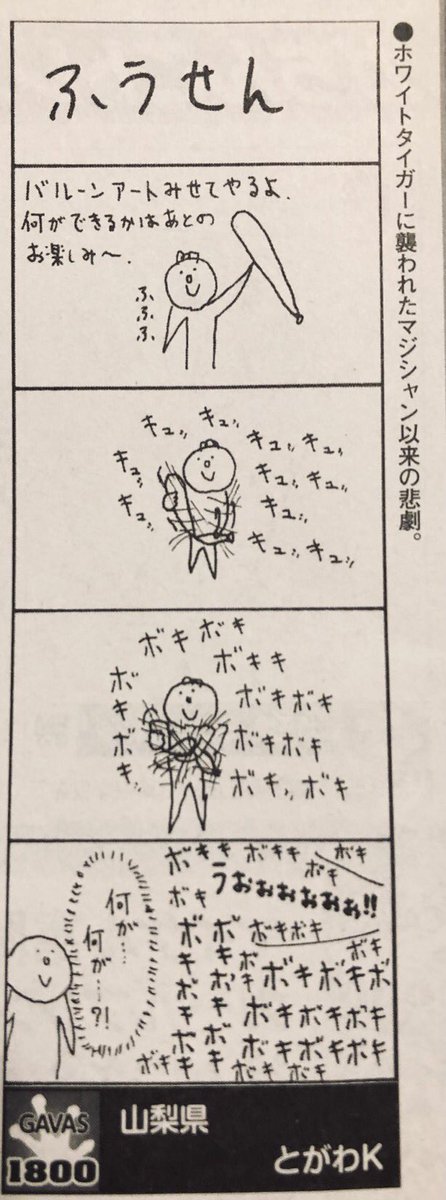 ●ホワイトタイガーに襲われたマジシャン以来の悲劇。
ふうせん
バルーンアートみせてやるよ.
何ができるかはあとの
お楽しみ〜.
ふふふ
キュッ
キュッ
キュッ キュッ
キュッ
キュッ キュッ
キュッ
キュッ
キュッ キュッ
ボキ ボキ
ボキキ
ボキボキ
ボキボキ
ボキボキ
ボキッ ボキ
ボキキ ボキキ ボキ
ボキ
うおぉぉぉぉぉぉ!!
ボキ
ボキボキ
ボキ
ボキボキボキ
ボキボキボキ
ボキ ボキ ボ
ボキ
ボキ ボキ ボキ
ボキ ボキ ボキ
ボキ
ボキ ボキ
何が…
何が……?!
GAVAS
1800
山梨県
とがわK